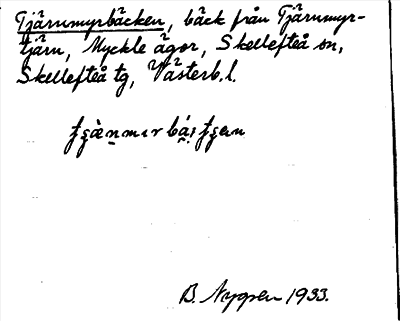 Tjärnmyrbäcken, bäck från Tjärnmyr-
tjärn, Myckle ägor, Skellefteå sn,
Skellefteå tg, Västerb. l.
B. Nygren 1933.